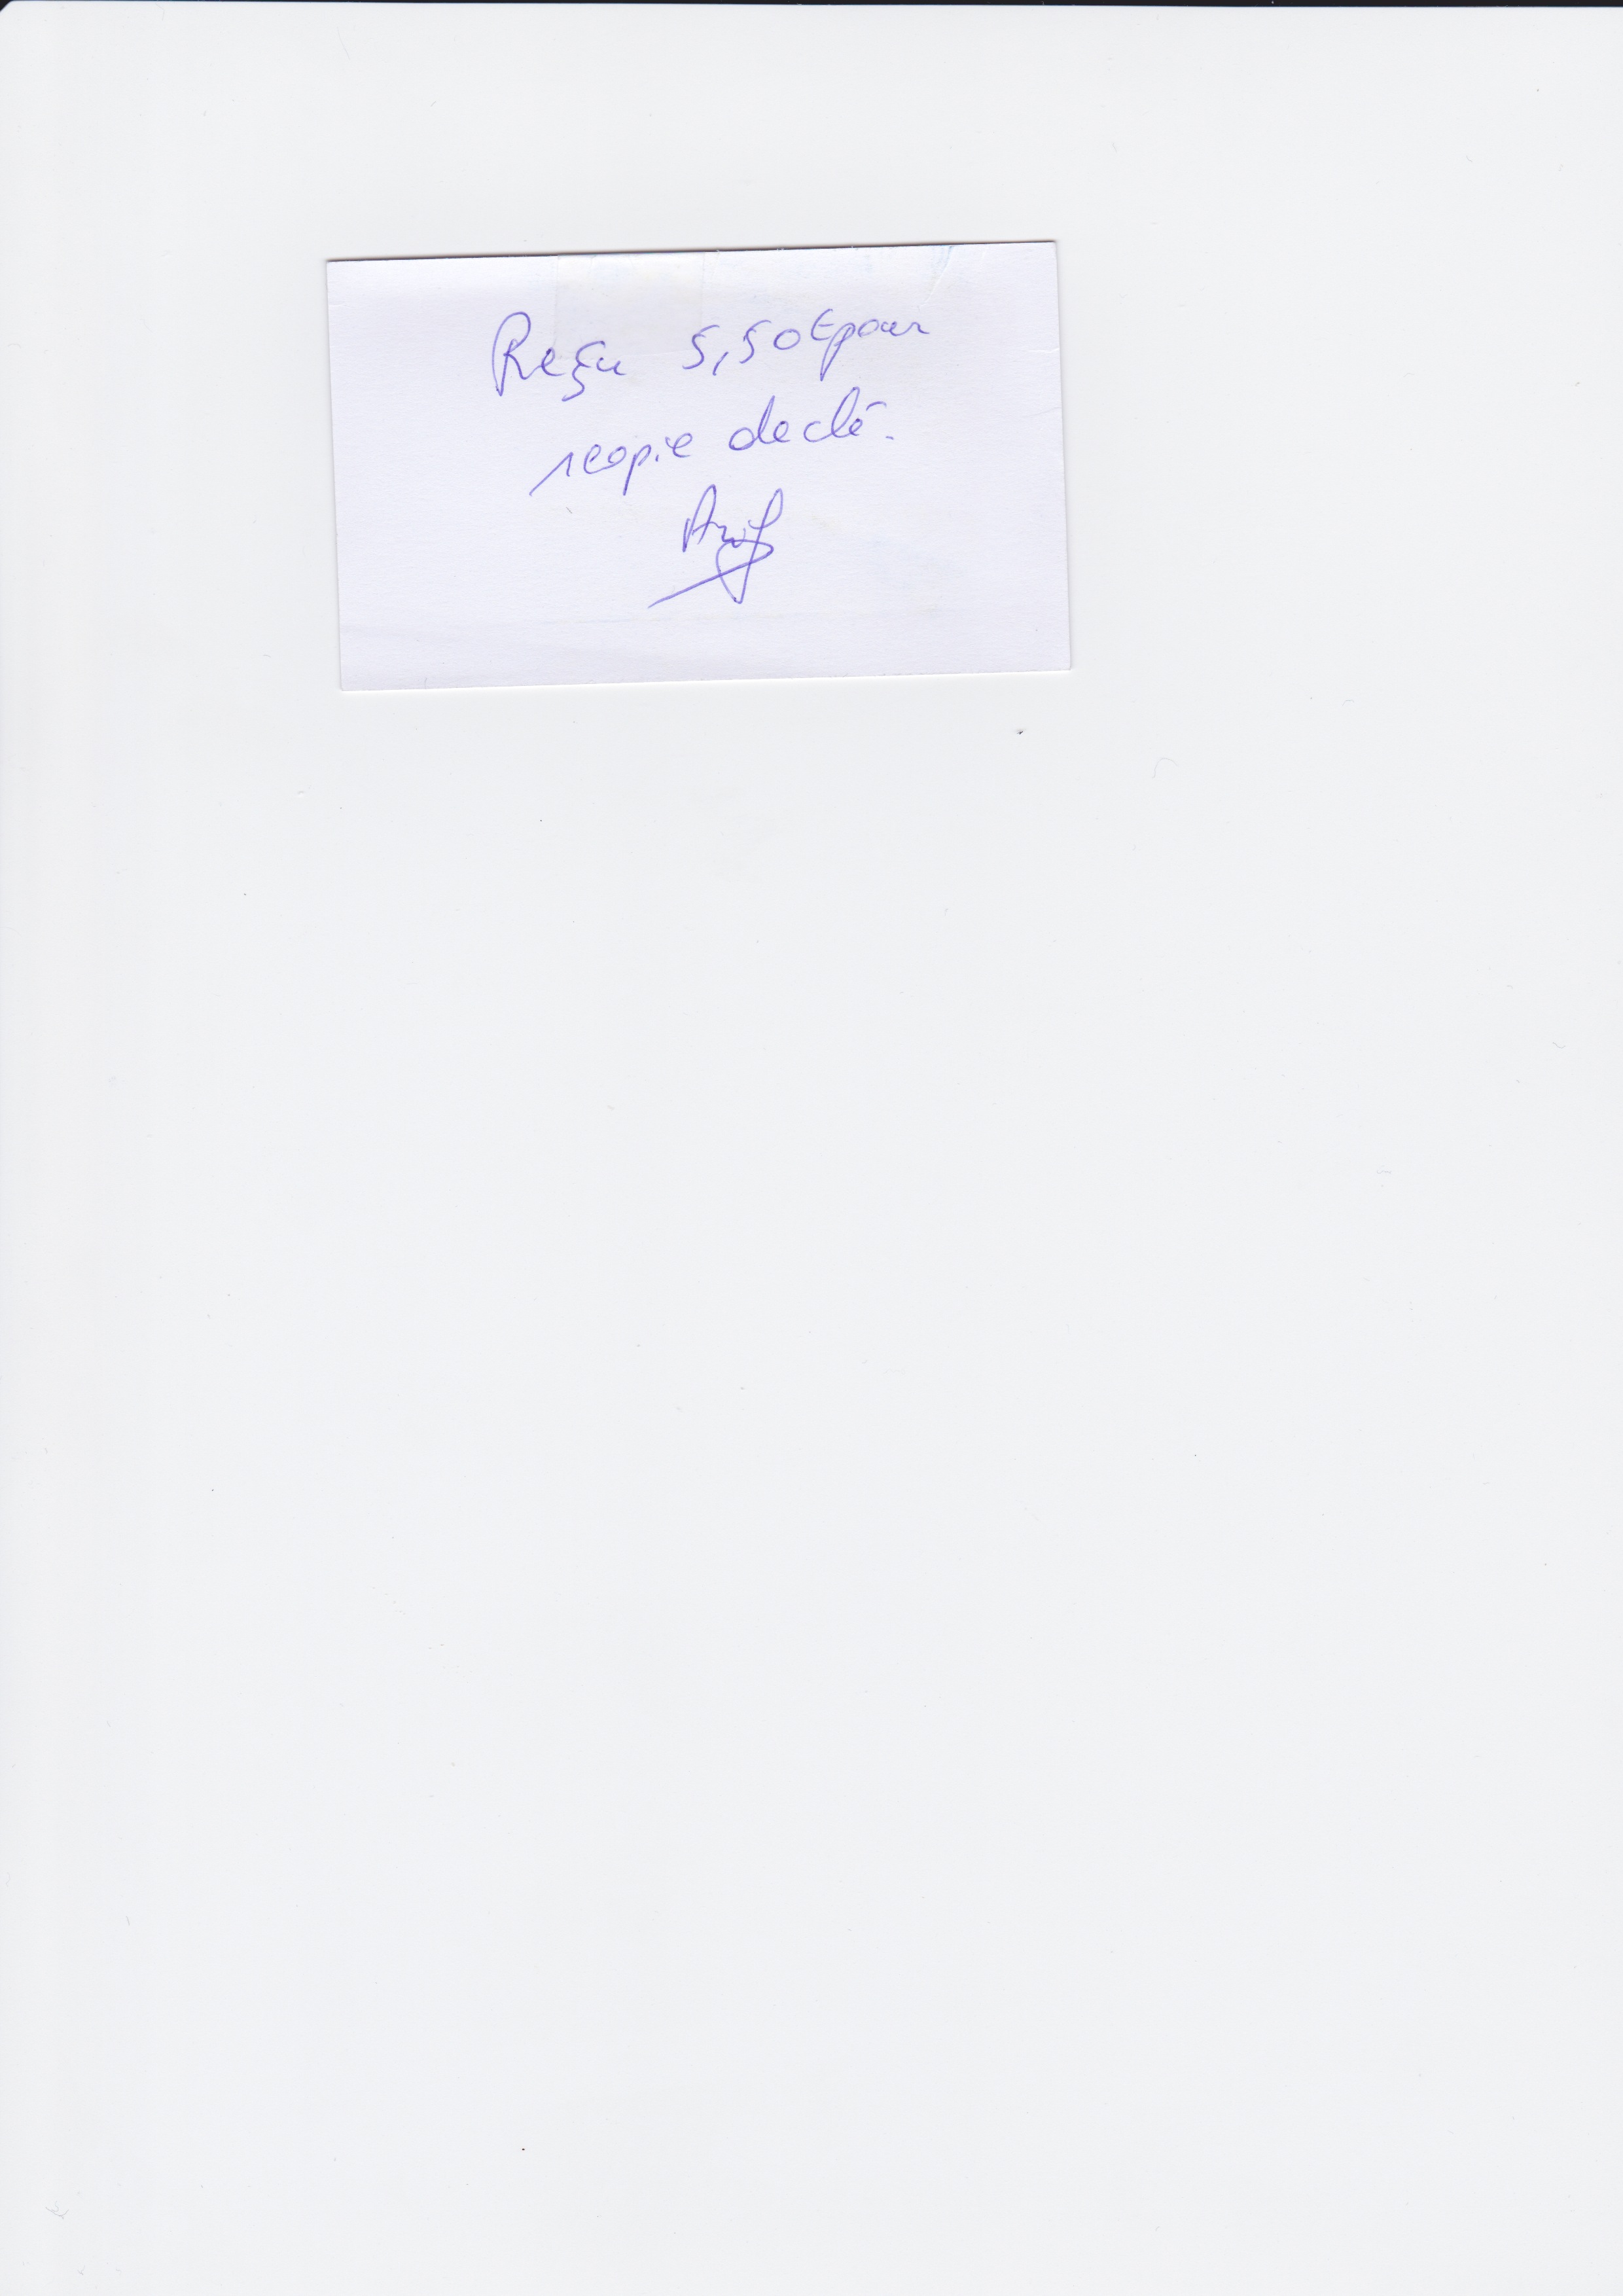 Reçu 5,50€ pour
1 copie de clé.